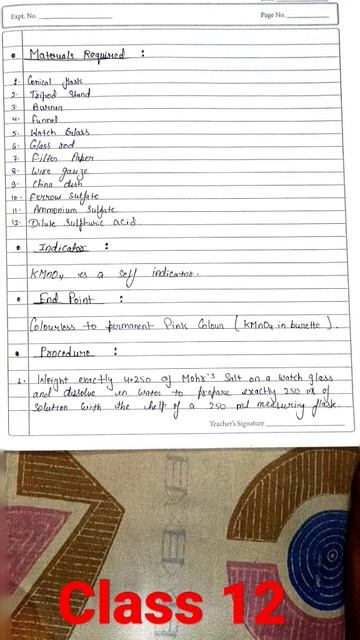 Expt. No.
Page No.
Materials Required :
1. Conical flask
2. Tripod Stand
3. Burner
4. Funnel
5. Watch Glass
6. Glass rod
7. Filter Paper
8. Wire gauze
9. China dish
10. Ferrow Sulfate
11. Ammonium Sulfate
12. Dilute Sulphuric acid.
Indicator :
KMnO4 is a self indicator.
End Point :
Colourless to permanent Pink Colour (KMnO4 in burette).
Procedure :
1. Weight exactly 4.250 g Mohr's Salt on a watch glass
and dissolve in water to prepare exactly 250 ml of
solution with the help of a 250 ml measuring flask.
Teacher's Signature
Class 12